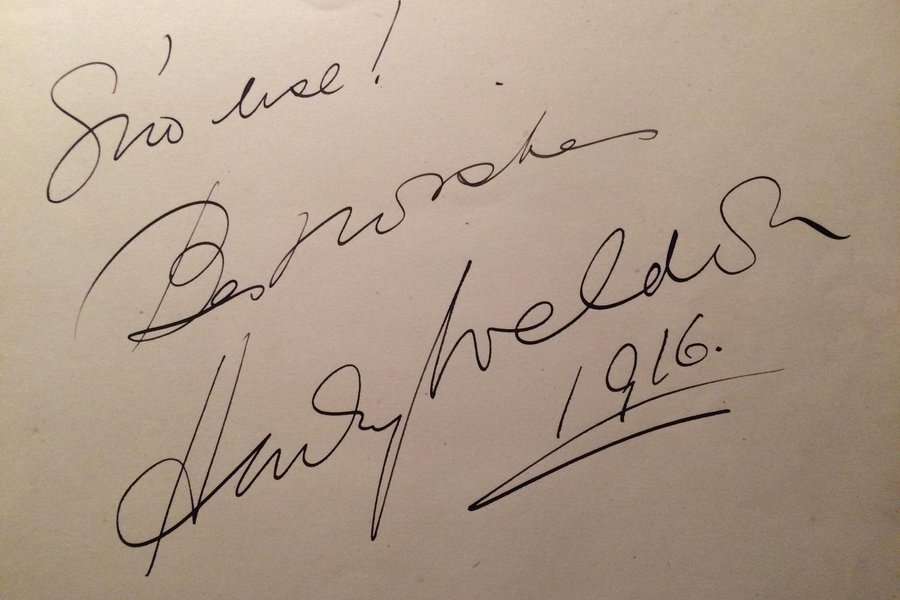 S'no use!
Best Wishes
Harry Weldon
1916.